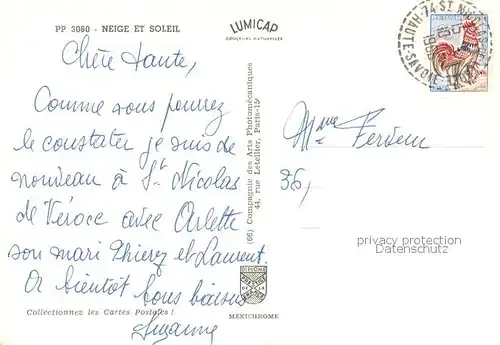 PP 3060 - NEIGE ET SOLEIL
LUMICAP
COULEURS NATURELLES
Chère tante,
Comme vous pourrez
le constater je suis de
nouveau à St Nicolas
de Véroce avec Arlette
son mari Thierry et Laurent.
A bientôt bons baisers
Suzanne
Collectionnez les Cartes Postales !
(66) Compagnie des Arts Photomécaniques
44, rue Letellier, Paris-15e
DIPLOME
PRESTIGE
DE LA
FRANCE
MEXICHROME
74 ST NICOLAS
HTE-SAVOIE
Mme
36,
privacy protection
Datenschutz